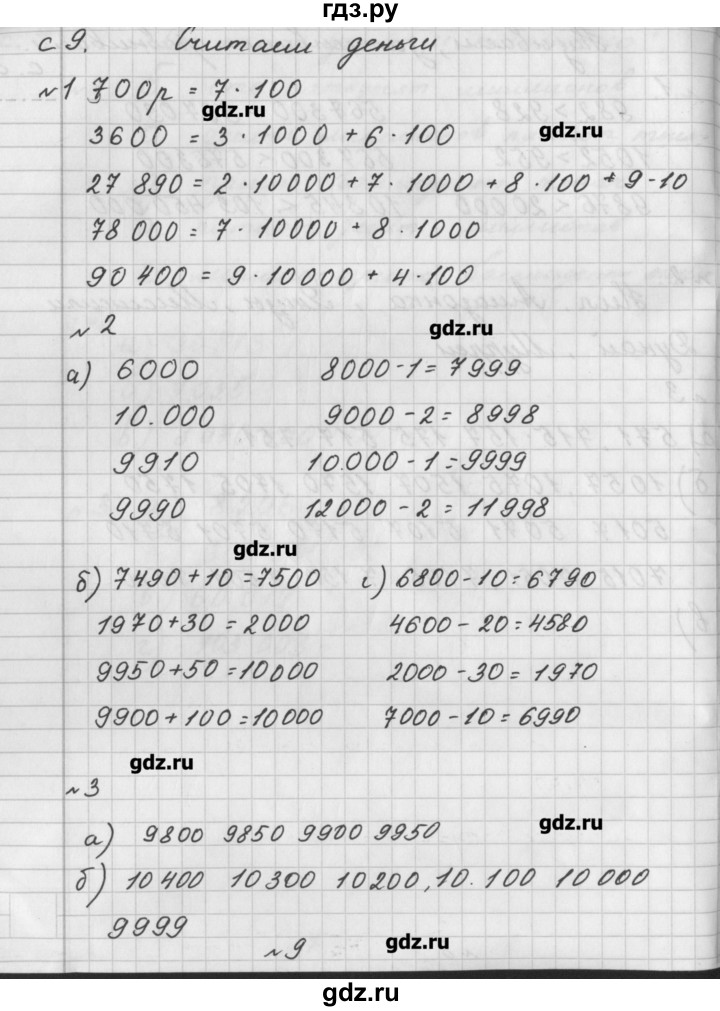 гдз.ру
с 9. Считаем деньги
№1 700р = 7 · 100
gdz.ru
3600 = 3 · 1000 + 6 · 100
gdz.ru
27 890 = 2 · 10000 + 7 · 1000 + 8 · 100 + 9 - 10
78 000 = 7 · 10000 + 8 · 1000
90 400 = 9 · 10000 + 4 · 100
№ 2
gdz.ru
а) 6000 8000 - 1 = 7999
10.000 9000 - 2 = 8998
9910 10.000 - 1 = 9999
9990 12000 - 2 = 11998
gdz.ru
б) 7490 + 10 = 7500 г) 6800 - 10 = 6790
1970 + 30 = 2000 4600 - 20 = 4580
9950 + 50 = 10000 2000 - 30 = 1970
9900 + 100 = 10000 7000 - 10 = 6990
gdz.ru
№ 3
а) 9800 9850 9900 9950
gdz.ru
б) 10400 10300 10200, 10.100 10000
9999
№ 9
gdz.ru
gdz.ru